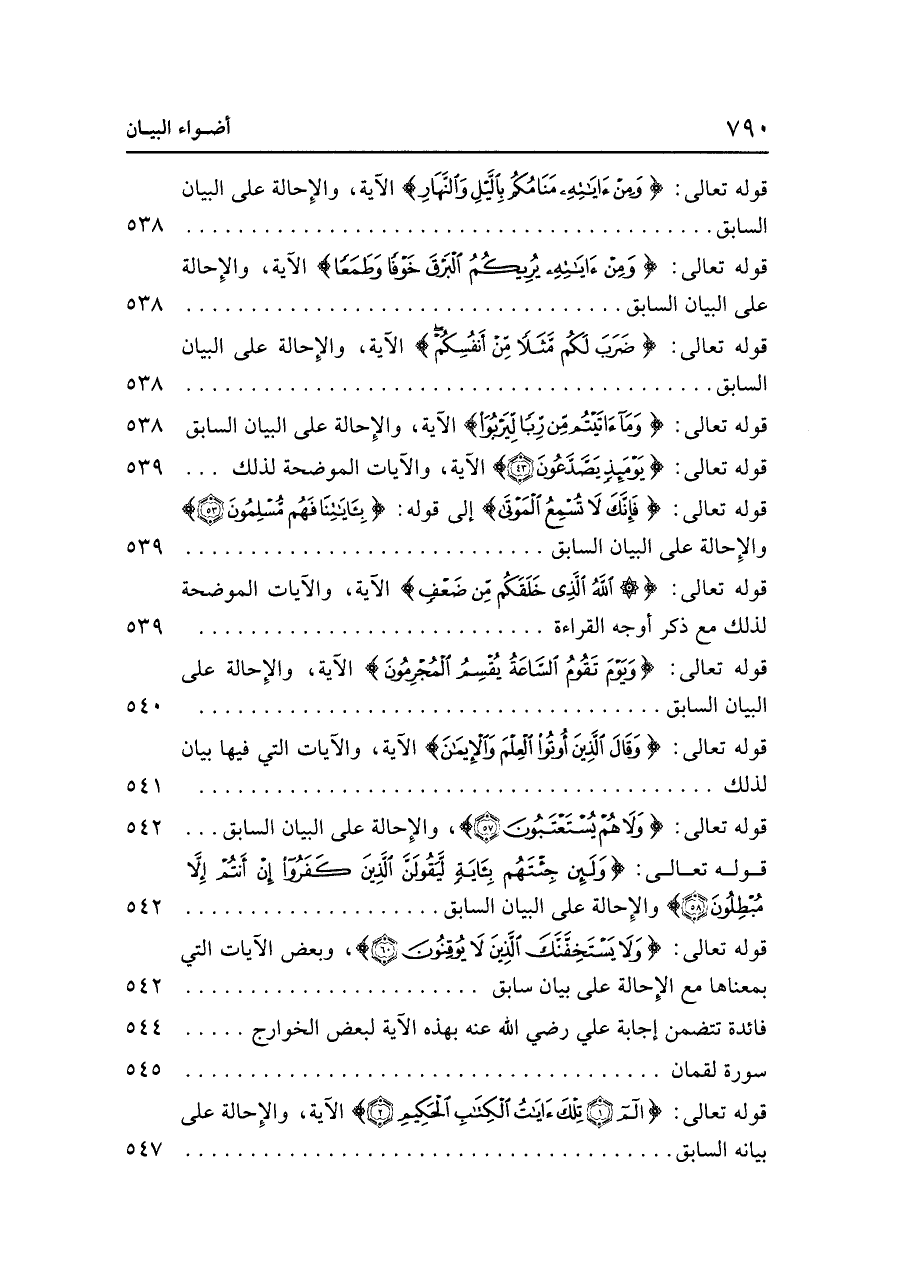 ٧٩٠ أضـواء البيـان
قوله تعالى: ﴿ وَمِنْ ءَايَـٰتِهِۦ مَنَامُكُم بِٱلَّيْلِ وَٱلنَّهَارِ ﴾ الآية، والإحالة على البيان
السابق . . . . . . . . . . . . . . . . . . . . ٥٣٨
قوله تعالى: ﴿ وَمِنْ ءَايَـٰتِهِۦ يُرِيكُمُ ٱلْبَرْقَ خَوْفًا وَطَمَعًا ﴾ الآية، والإحالة
على البيان السابق . . . . . . . . . . . . . . . . . . . . ٥٣٨
قوله تعالى: ﴿ ضَرَبَ لَكُم مَّثَلًا مِّنْ أَنفُسِكُمْ ۖ ﴾ الآية، والإحالة على البيان
السابق . . . . . . . . . . . . . . . . . . . . ٥٣٨
قوله تعالى: ﴿ وَمَآ ءَاتَيْتُم مِّن رِّبًا لِّيَرْبُوَا۟ ﴾ الآية، والإحالة على البيان السابق ٥٣٨
قوله تعالى: ﴿ يَوْمَئِذٍ يَصَّدَّعُونَ ٤٣ ﴾ الآية، والآيات الموضحة لذلك . . . ٥٣٩
قوله تعالى: ﴿ فَإِنَّكَ لَا تُسْمِعُ ٱلْمَوْتَىٰ ﴾ إلى قوله: ﴿ بِـَٔايَـٰتِنَا فَهُم مُّسْلِمُونَ ٥٣ ﴾
والإحالة على البيان السابق . . . . . . . . . . . . . . . . . . . . ٥٣٩
قوله تعالى: ﴿ ۞ ٱللَّهُ ٱلَّذِى خَلَقَكُم مِّن ضَعْفٍ ﴾ الآية، والآيات الموضحة
لذلك مع ذكر أوجه القراءة . . . . . . . . . . . . . . . . . . . . ٥٣٩
قوله تعالى: ﴿ وَيَوْمَ تَقُومُ ٱلسَّاعَةُ يُقْسِمُ ٱلْمُجْرِمُونَ ﴾ الآية، والإحالة على
البيان السابق . . . . . . . . . . . . . . . . . . . . ٥٤٠
قوله تعالى: ﴿ وَقَالَ ٱلَّذِينَ أُوتُوا۟ ٱلْعِلْمَ وَٱلْإِيمَـٰنَ ﴾ الآية، والآيات التي فيها بيان
لذلك . . . . . . . . . . . . . . . . . . . . ٥٤١
قوله تعالى: ﴿ وَلَا هُمْ يُسْتَعْتَبُونَ ٥٧ ﴾، والإحالة على البيان السابق . . . ٥٤٢
قـولـه تعـالـى: ﴿ وَلَئِن جِئْتَهُم بِـَٔايَةٍ لَّيَقُولَنَّ ٱلَّذِينَ كَفَرُوٓا۟ إِنْ أَنتُمْ إِلَّا
مُبْطِلُونَ ٥٨ ﴾ والإحالة على البيان السابق . . . . . . . . . . . . . . . . . . . . ٥٤٢
قوله تعالى: ﴿ وَلَا يَسْتَخِفَّنَّكَ ٱلَّذِينَ لَا يُوقِنُونَ ٦٠ ﴾، وبعض الآيات التي
بمعناها مع الإحالة على بيان سابق . . . . . . . . . . . . . . . . . . . . ٥٤٢
فائدة تتضمن إجابة علي رضي الله عنه بهذه الآية لبعض الخوارج . . . . . ٥٤٤
سورة لقمان . . . . . . . . . . . . . . . . . . . . ٥٤٥
قوله تعالى: ﴿ الٓمٓ ١ تِلْكَ ءَايَـٰتُ ٱلْكِتَـٰبِ ٱلْحَكِيمِ ٢ ﴾ الآية، والإحالة على
بيانه السابق . . . . . . . . . . . . . . . . . . . . ٥٤٧